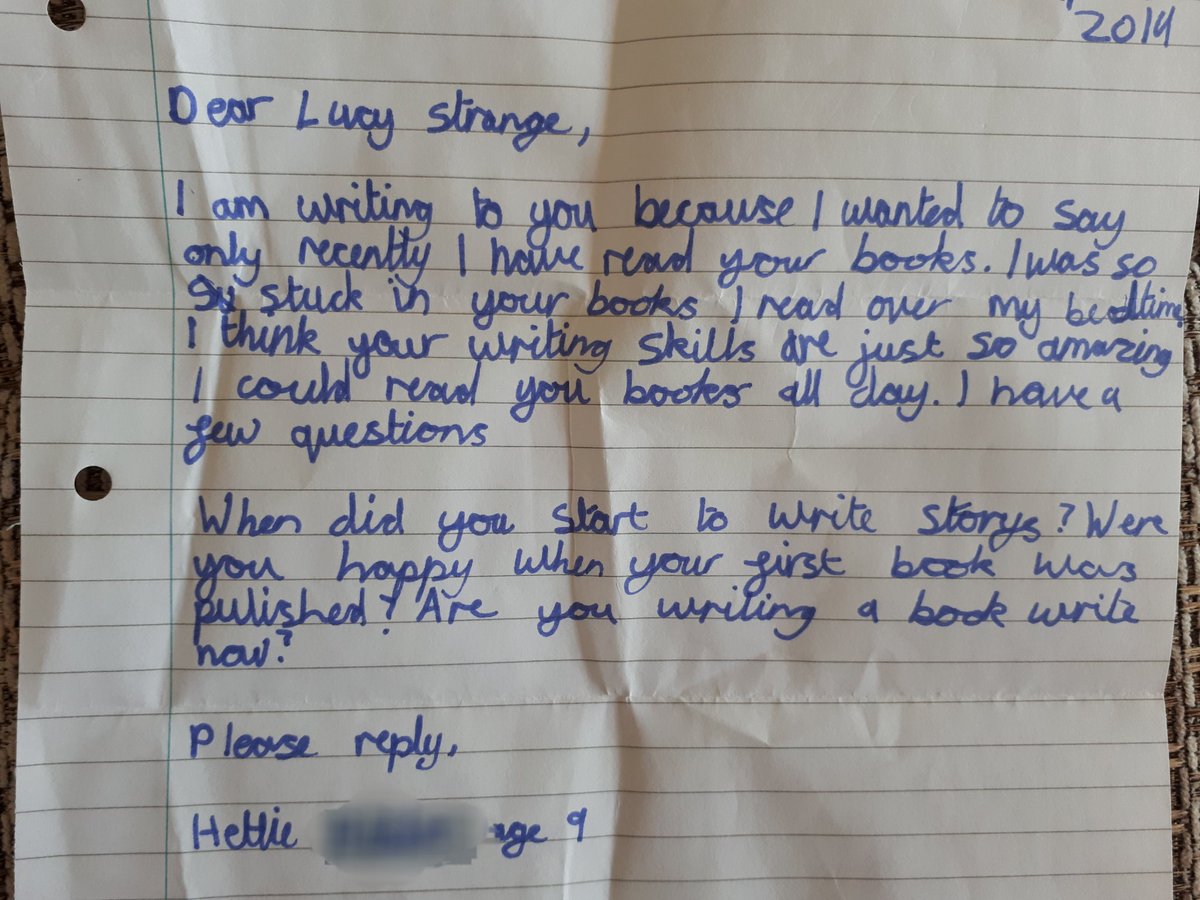 2019
Dear Lucy Strange,
I am writing to you because I wanted to say
only recently I have read your books. I was so
stuck in your books I read over my bedtime
I think your writing skills are just so amazing
I could read you books all day. I have a
few questions
When did you start to write storys? Were
you happy when your first book was
pulished? Are you writing a book write
now?
Please reply,
Hettie age 9